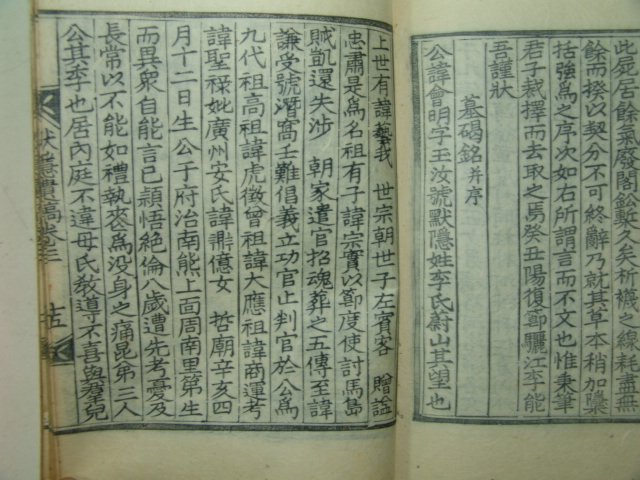 此屍居餘氣廢閣鉛槧久矣析襪之線耗盡無
餘而揆以契分不可終辭乃就其草本稍加櫽
括強爲之序次如右所謂言而不文也惟秉筆
君子裁擇而去取之焉癸丑陽復節驪江李能
吾謹狀
墓碣銘并序
公諱會明字玉汝號默隱姓李氏蔚山其望也
上世有諱藝我 世宗朝世子左賓客 贈諡
忠肅是爲名祖有子諱宗實以節度使討馬島
賊凱還失涉 朝家遣官招魂葬之五傳至諱
謙受號潛窩壬難倡義立功官止判官於公爲
九代祖高祖諱虎徵曾祖諱大應祖諱商運考
諱聖祿妣廣州安氏諱億女 哲廟辛亥四
月十二日生公于府治南熊上面周南里第生
而異衆自能言已穎悟絶倫八歲遭先考憂及
長常以不能如禮執喪爲没身之痛昆弟三人
公其季也居内庭不違母氏敎導不喜與羣兒
默隱實稿卷三
十五